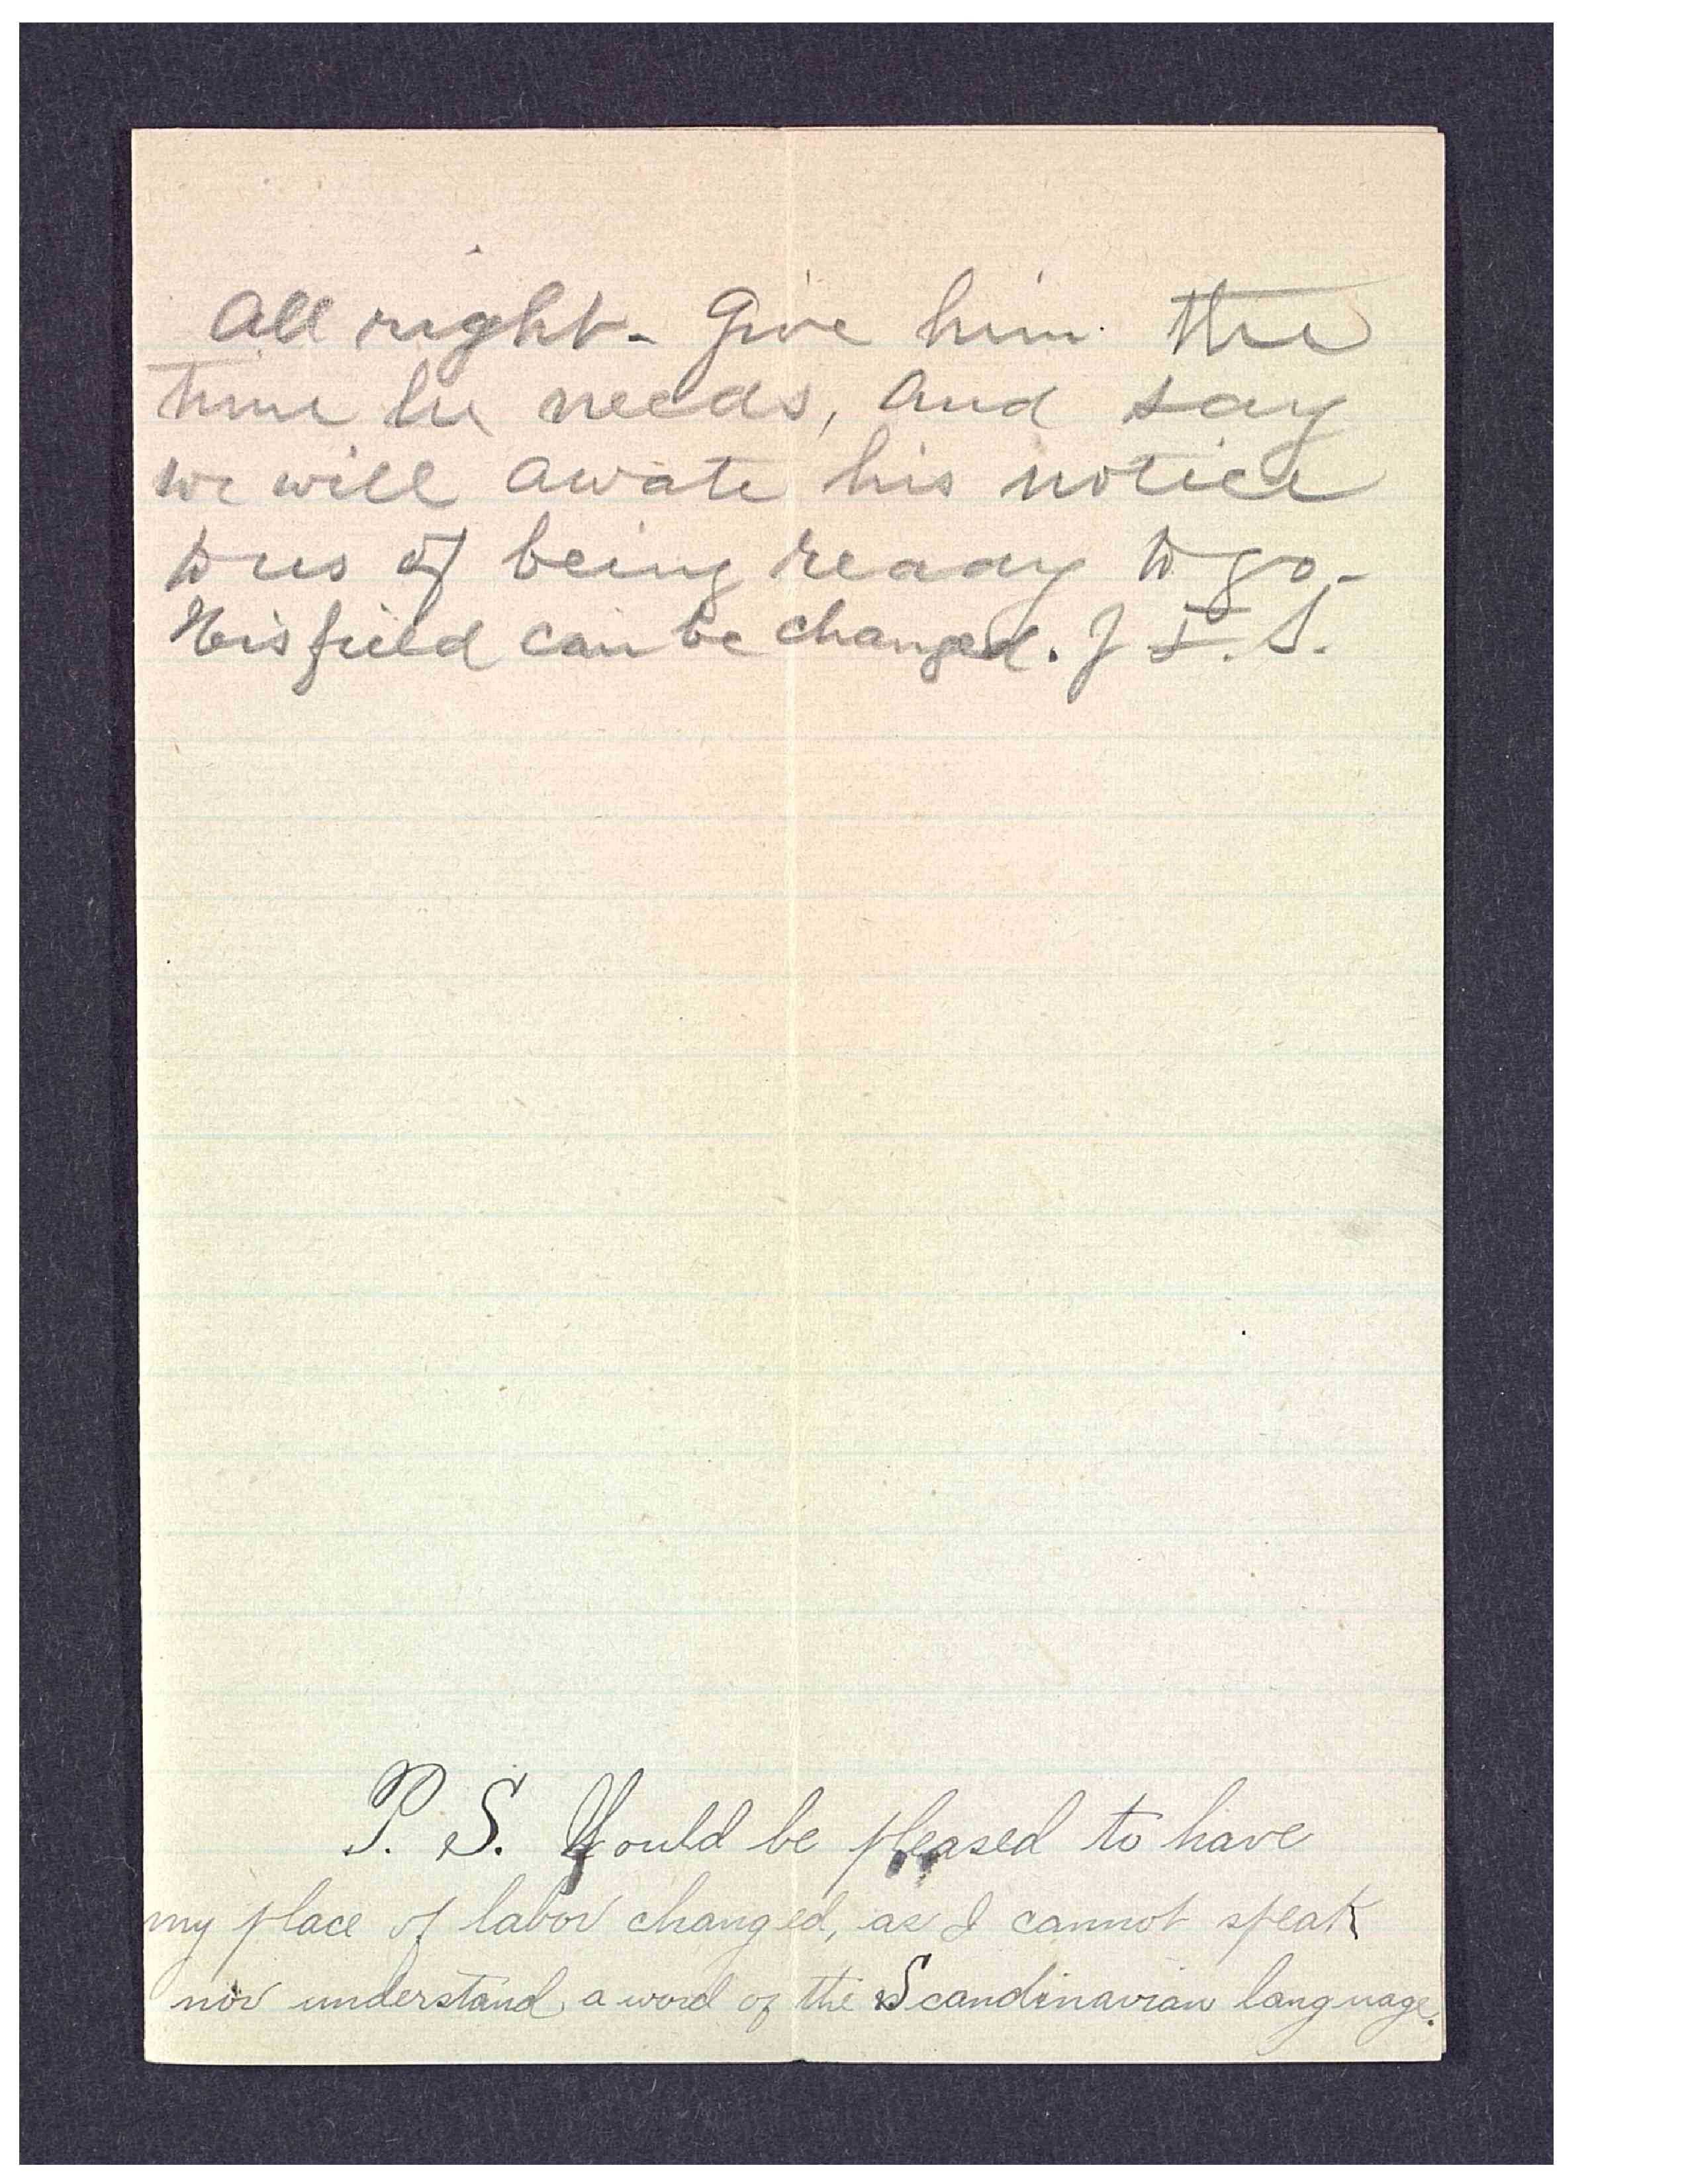 All right - Give him the
time he needs, and say
we will awate his notice
to us of being ready to go -
His field can be changed. J F. S.
P. S. Would be pleased to have
my place of labor changed, as I cannot speak
nor understand, a word of the Scandinavian language.